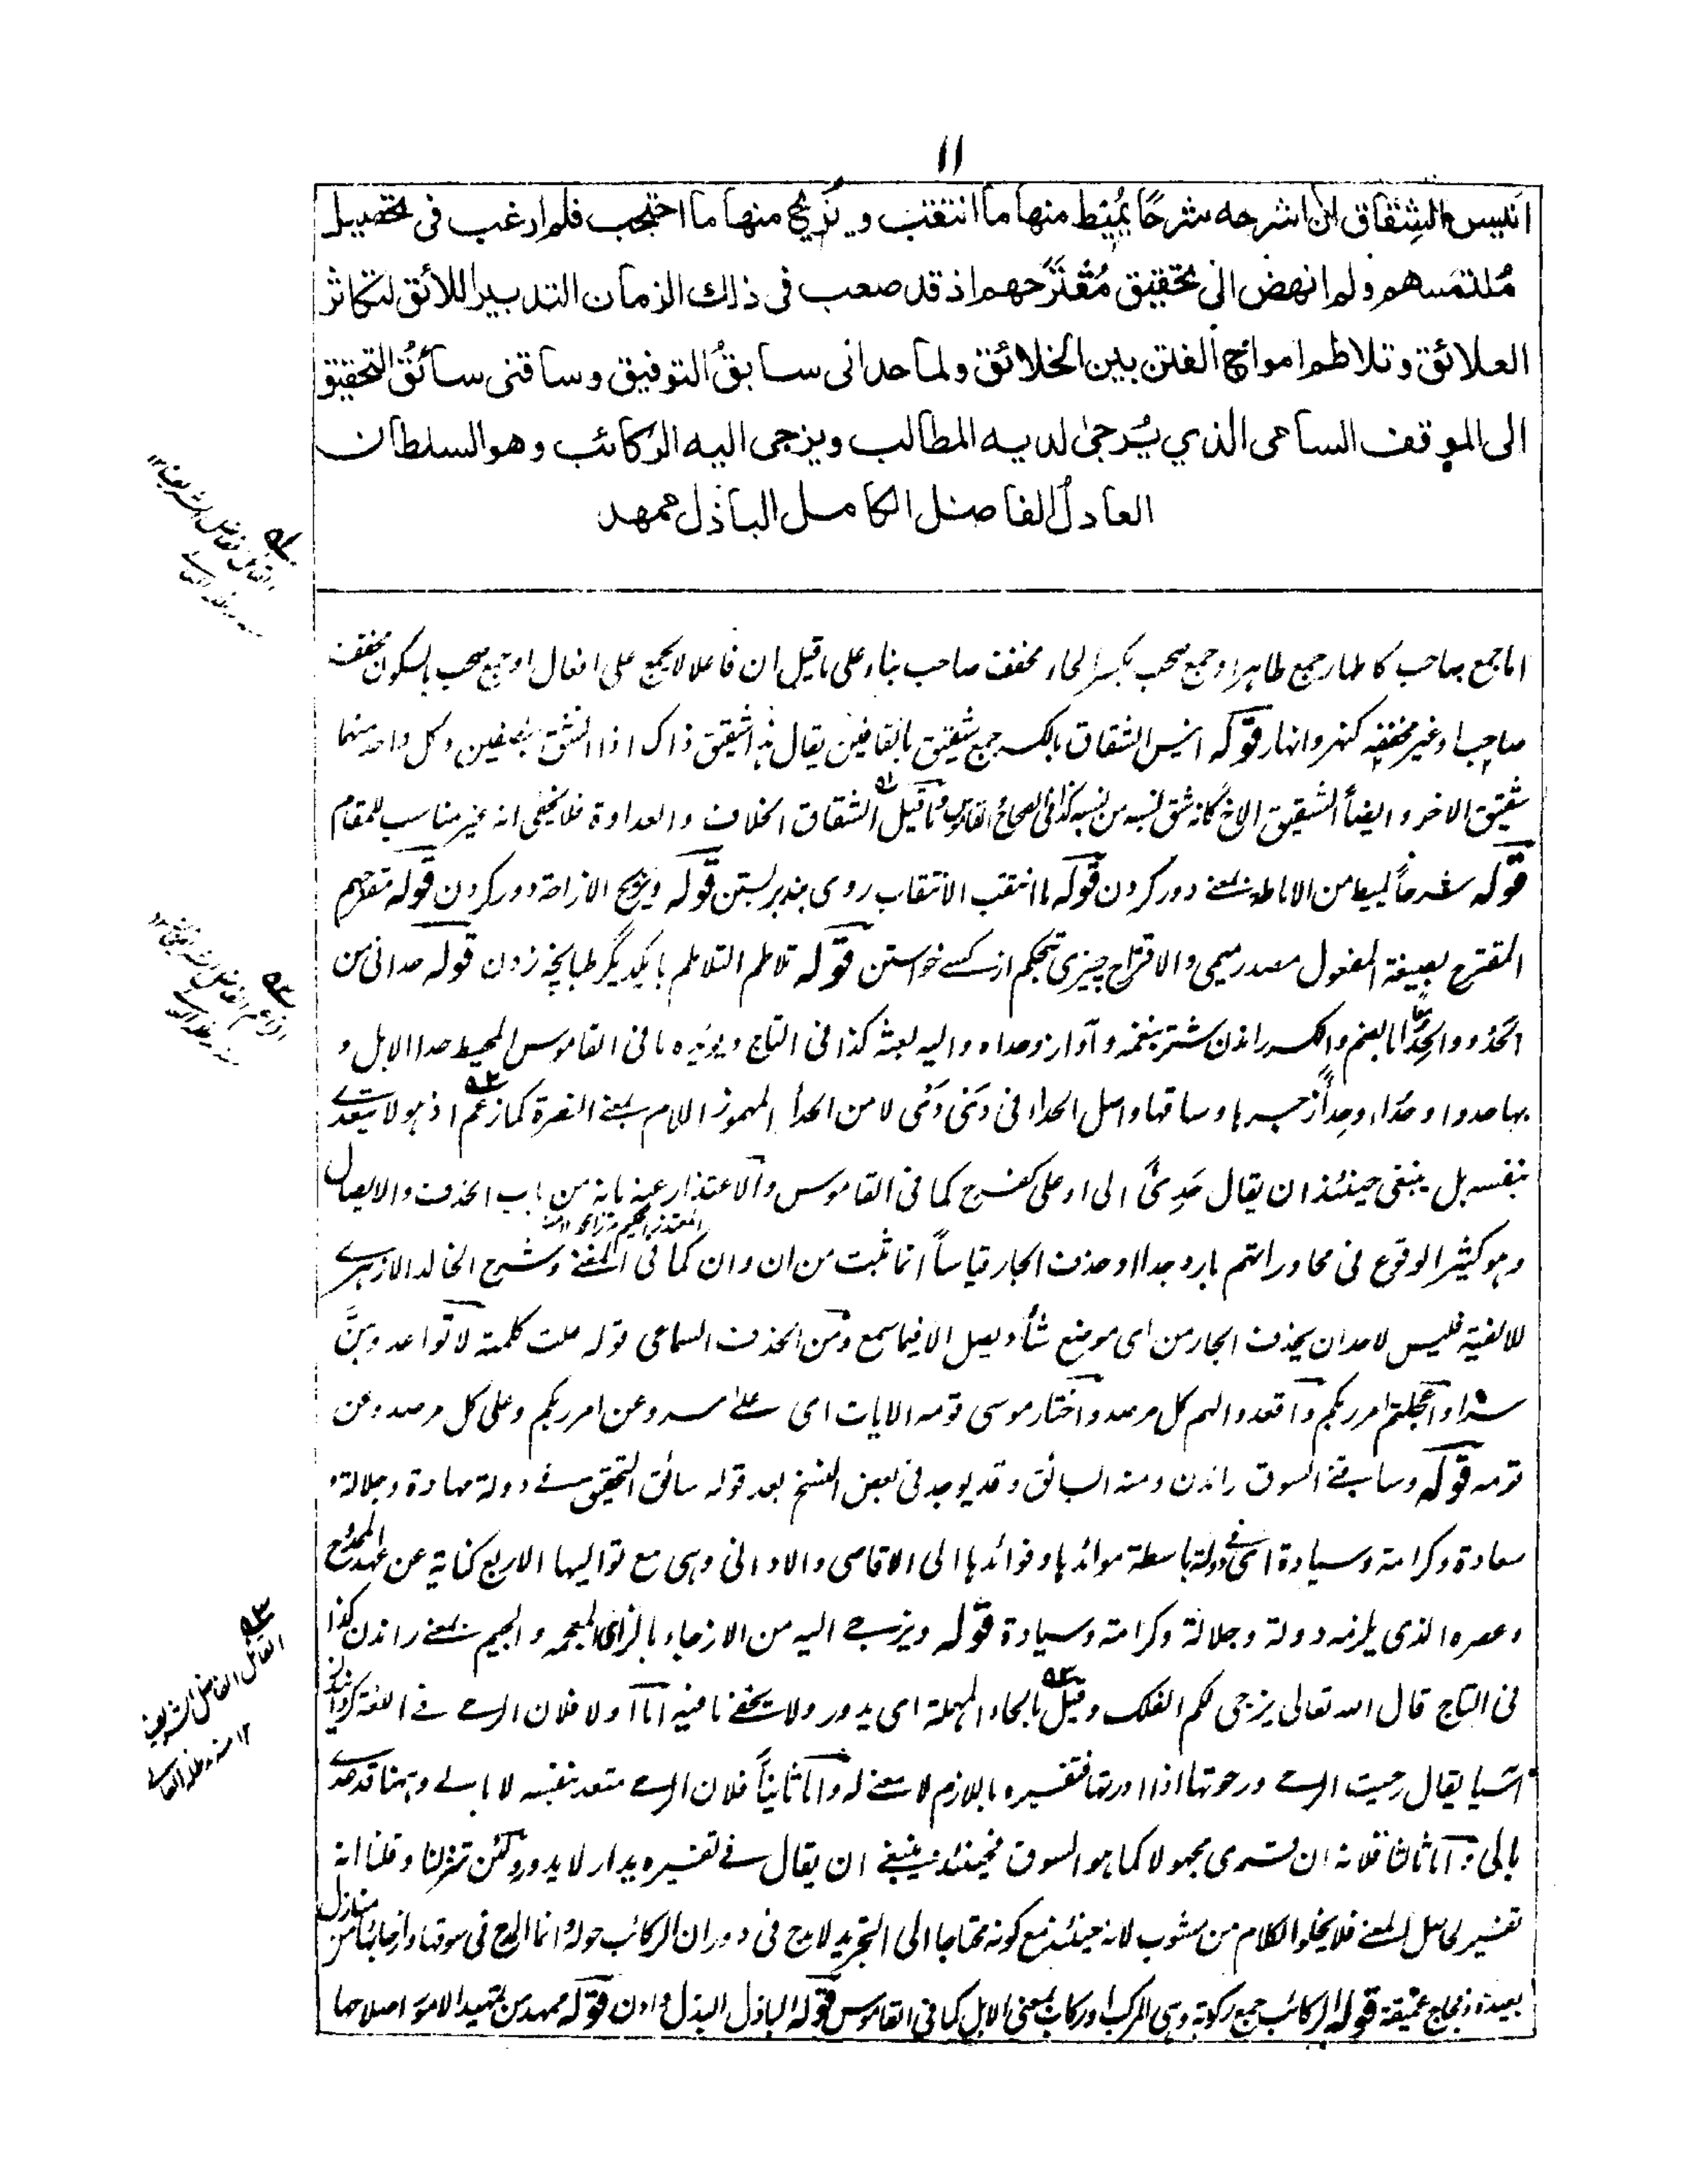 ١١
انيس الشِقاق ان اشرحه شرحًا يُميط منها ما انتقب ويُزيح منها ما احتجب فلم ارغب فى تحصيل
مُلتمَسهم ولم انهض الى تحقيق مُقتَرَحهم اذ قد صعب فى ذلك الزمان التدبير اللائق لتكاثر
العلائق وتلاطم امواج الفتن بين الخلائق ولما حدانى سابقُ التوفيق وساقنى سائقُ التحقيق
الى الموقف السامى الذي يُرجىٰ لديه المطالب ويزجى اليه الركائب وهو السلطان
العادل الفاضل الكامل الباذل ممهد
اما جمع صاحب كاطهار جمع طاهر او جمع صحب بكسر الحاء مخفف صاحب بناء على ما قيل ان فاعلا لا يجمع على افعال او جمع صحب بالسكون مخفف
صاحب او غير مخففه كنهر وانهار قوله انيس الشقاق بالكسر جمع شقيق بالقافين يقال هذا شقيق ذاك اذا انشق بنصفين وكل واحد منهما
شقيق الاخر وايضاً الشقيق الاخ كانه شق نسبه من نسبه كذا فى الصحاح القاموس وما قيل الشقاق الخلاف والعداوة فلا يخفى انه غير مناسب للمقام
قوله شرحاً يميط من الاماطة بمعنے دور كردن قوله ما انتقب الانتقاب روى بند بربستن قوله ويزيح الازاحة دور كردن قوله مقترحهم
المقترح بصيغة المفعول مصدر ميمى والاقتراح چيزى بتحكم از كسے خواستن قوله تلاطم التلاطم بايكديگر طپانچه زدن قوله حدانى من
الحَدْو والحِدَاء بالضم والكسر راندن شتر بنغمه وآواز وحداه واليه بعثه كذا فى التاج ويؤيده ما فى القاموس المحيط حدا الابل و
بها حدوا وحُداء وحِداءً زجرها وساقها واصل الحدا فى دَىْ دَىْ لا من الحدأ المهموز اللام بمعنے النصرة كما زعم اذ هو لا يتعدے
بنفسه بل ينبغى حينئذ ان يقال حَدِئَ الى او على كفرح كما فى القاموس والاعتذار عنه بانه من باب الحذف والايصال
وهو كثير الوقوع فى محاوراتهم بارد جدا او حذف الجار قياساً انما ثبت من ان وان كما فى المغنے وشرح الخالد الازهرے
للالفية فليس لاحد ان يحذف الجار من اى موضع شاء ويصل الا فيما سمع ومن الحذف السماعى قوله علت كلمة لا تواعدوهنَّ
سرا واعجلتم امر ربكم واقعدوا لهم كل مرصد واختار موسى قومه الايات اى علے سر وعن امر ربكم وعلى كل مرصد ومن
قومه قوله وساقنے السوق راندن ومنه السائق وقد يوجد فى بعض النسخ بعد قوله سائق التحقيق فے دولة مهادة وجلالة
سعادة وكرامة وسيادة اى فے دولة باسطة موائدها وفوائدها الى الاقاصى والادانى وهى مع تواليها الاربع كناية عن عهد الممدوح
وعصره الذى يلزمه دولة وجلالة وكرامة وسيادة قوله ويزجے اليه من الازجاء بالزاى المعجمه والجيم بمعنے راندن كذا
فى التاج قال الله تعالى يزجى لكم الفلك وقيل بالحاء المهملة اى يدور ولا يخفے ما فيه اما اولا فلان الرحے فے اللغة گردانيدن
آسيا يقال رحيت الرحے ورحوتها اذا ادرتها فتفسيره باللازم لا معنے له واما ثانياً فلان الرحے متعد بنفسه لا بالے وههنا قد عدے
بالى واما ثالثا فلانه ان قرئ مجهولا كما هو السوق فحينئذ ينبغے ان يقال فے تفسيره يدار لا يدور ولئن تنزلنا وقلنا انه
تفسير لحاصل المعنے فلا يخلو الكلام من شوب لانه حينئذ مع كونه محتاجا الى التجريد لا مدح فى دوران الركائب حوله وانما المدح فى سوقها وازجائها من منازل
بعيدة وفجاج عميقة قوله الركائب جمع ركوبة وهى المركب او ركاب بمعنى الابل كما فى القاموس قوله الباذل البذل دادن قوله ممهد من تمهيد الامور اصلاحها
القائل الفاضل الشريف
١٢ منه مد ظله العالے